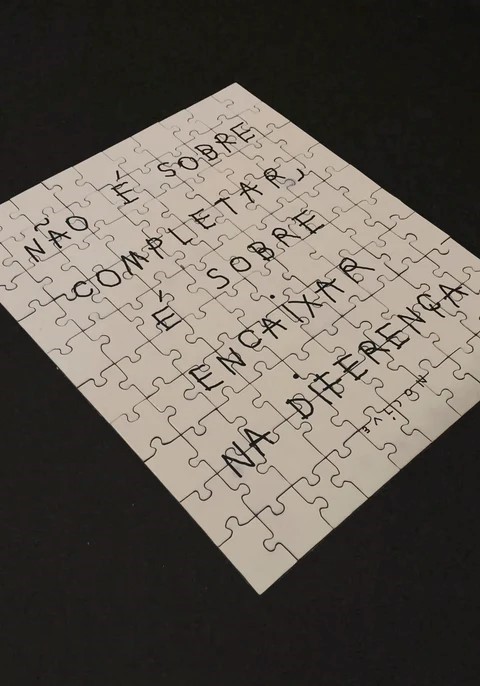 NÃO É SOBRE
COMPLETAR,
É SOBRE
ENCAIXAR
NA DIFERENÇA